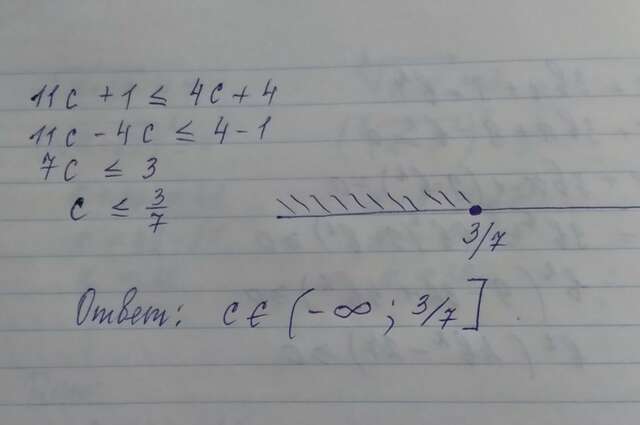 11c + 1 ≤ 4c + 4
11c - 4c ≤ 4 - 1
7c ≤ 3
c ≤ 3/7
3/7
Ответ: c ∈ (-∞; 3/7]